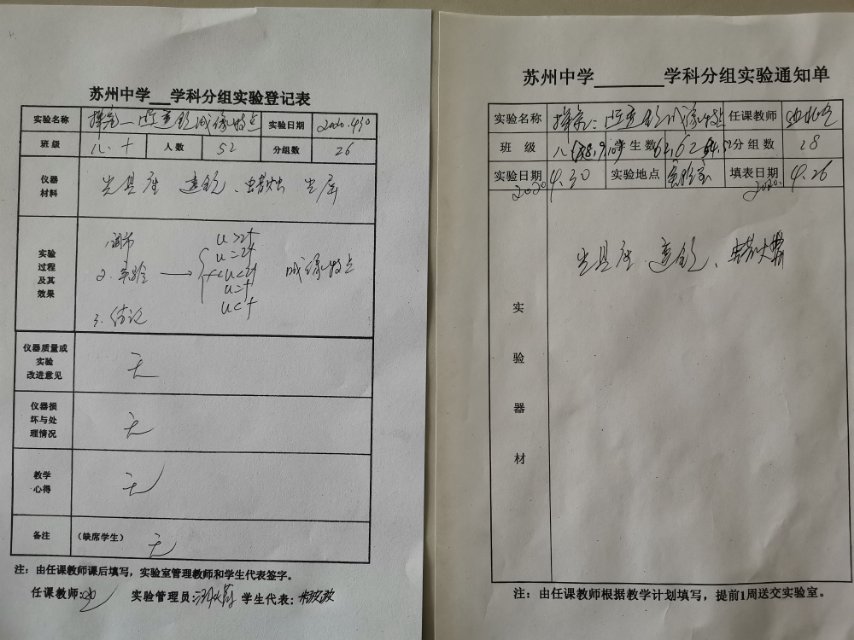 苏州中学___学科分组实验登记表
实验名称 探究:凸透镜成像特点 实验日期 2020.4.30
班级 八.十 人数 52 分组数 26
仪器材料 光具座 透镜、蜡烛 光屏
实验过程及其效果
1.调节
2.实验 → u>2f u=2f f<u<2f u=f u<f 成像特点
3.结论
仪器质量或实验改进意见 无
仪器损坏与处理情况 无
教学心得 无
备注 (缺席学生) 无
注：由任课教师课后填写，实验室管理教师和学生代表签字。
任课教师: 实验管理员: 学生代表:
苏州中学______学科分组实验通知单
实验名称 探究:凸透镜成像特点 任课教师
班级 学生数 分组数 28
实验日期 2020 4.30 实验地点 实验室 填表日期 2020. 4.26
实验器材 光具座 透镜、蜡烛
注：由任课教师根据教学计划填写，提前1周送交实验室。